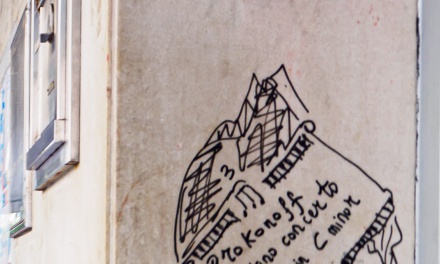 3
Prokonoff
piano concerto
in C minor